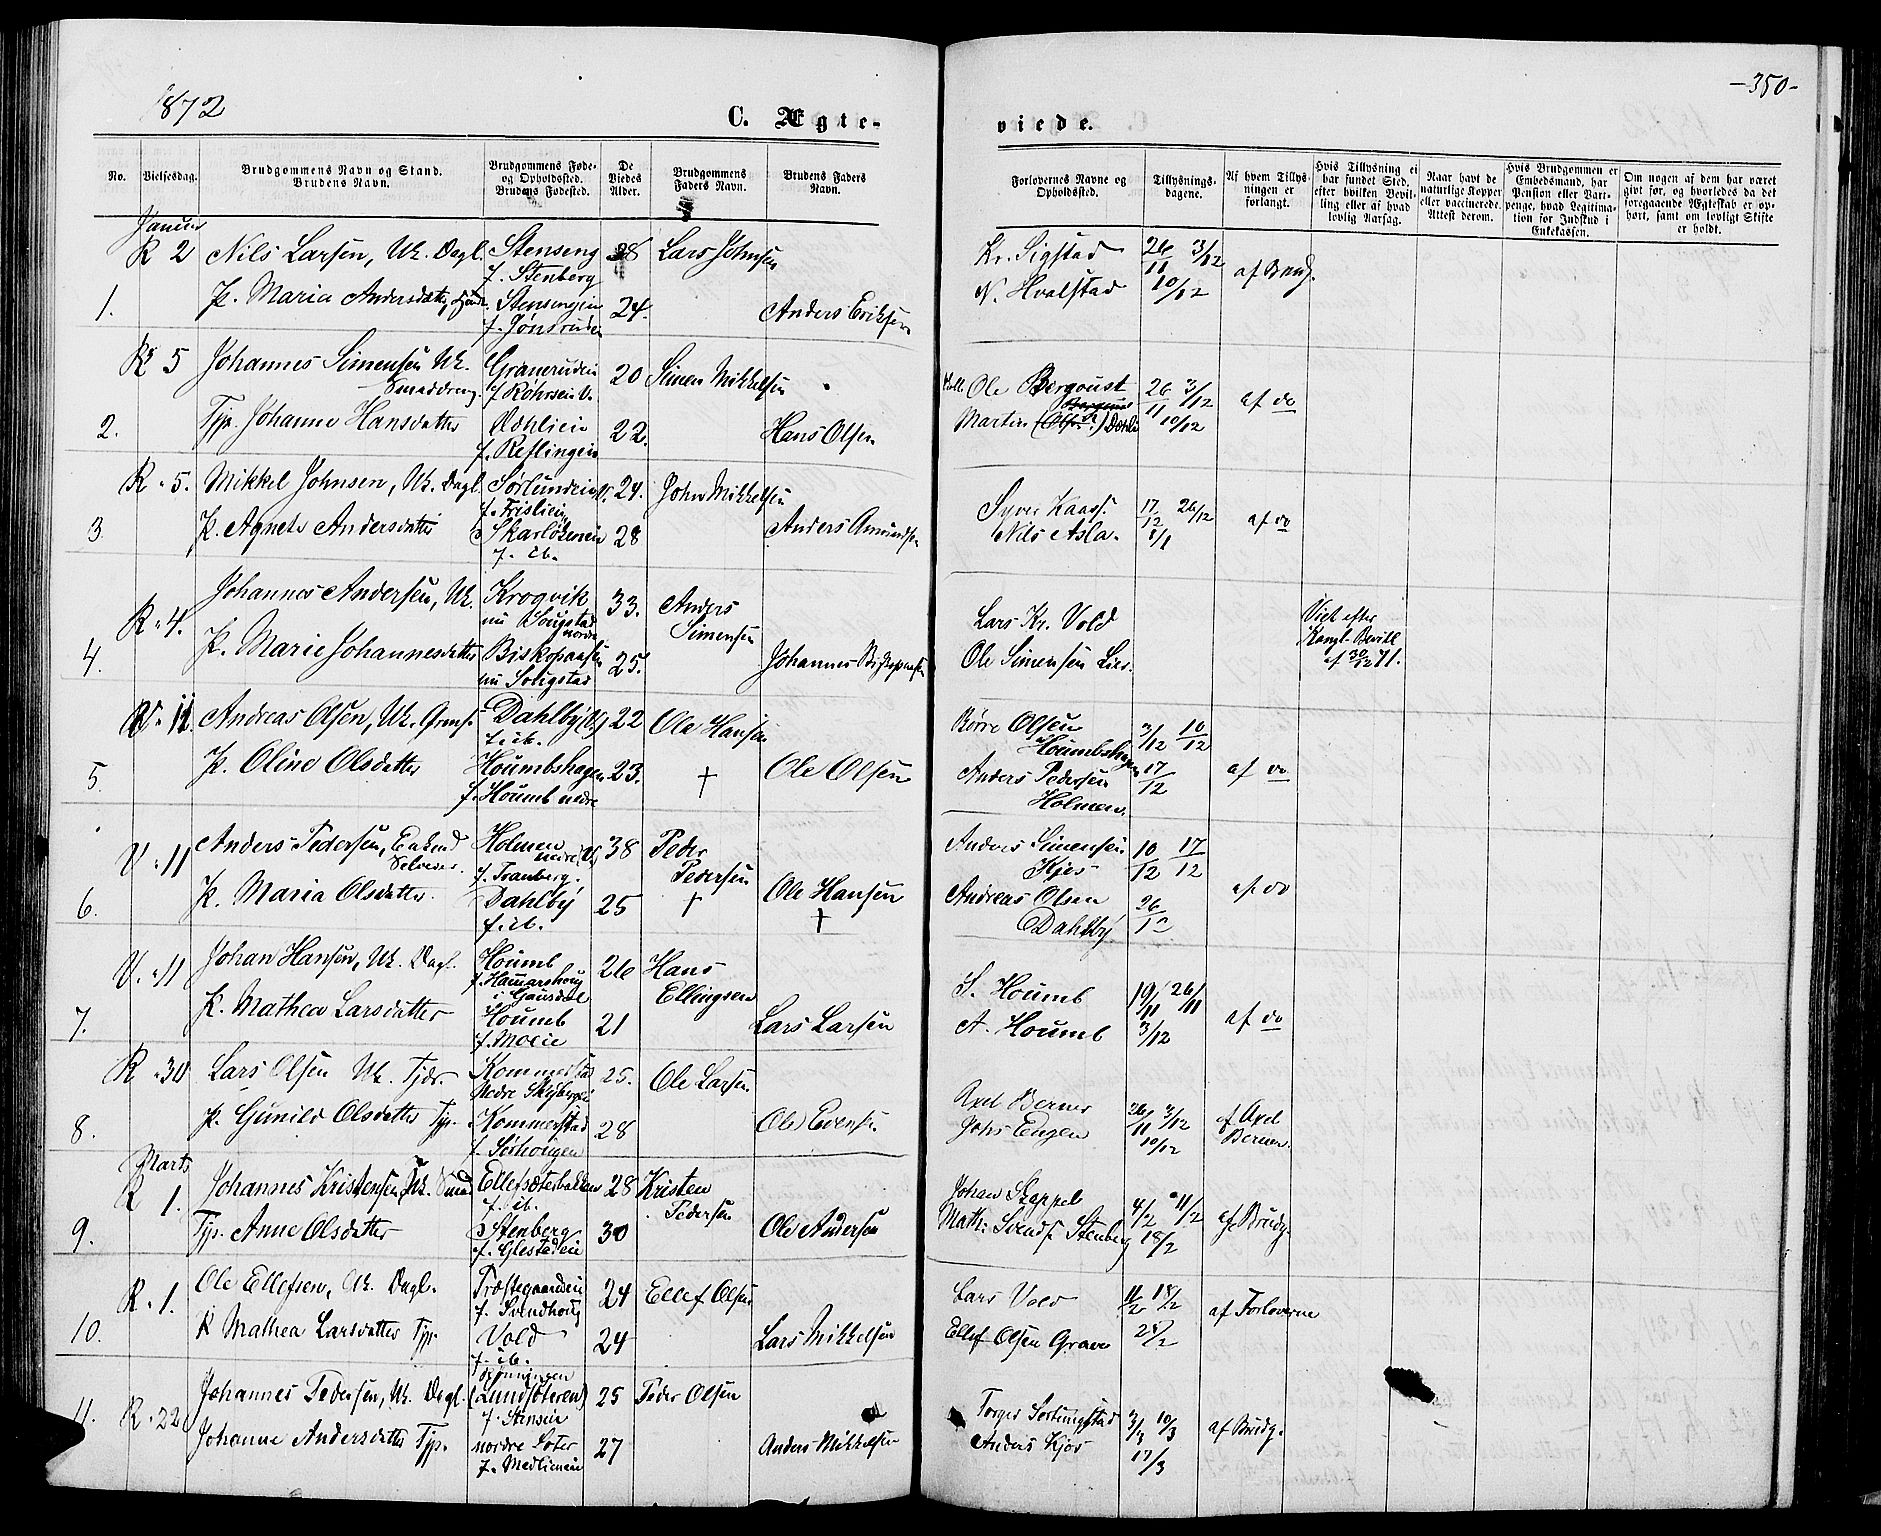 1872
C. Ægte-
viede.
-350-
No.
Vielsesdag.
Brudgommens Navn og Stand.
Brudens Navn.
Brudgommens Føde-
og Opholdssted.
Brudens Fødested.
De
Viedes
Alder.
Brudgommens
Faders Navn.
Brudens Faders
Navn.
Forlovernes Navne og
Opholdssted.
Tillysnings-
dagene.
Af hvem Tillys-
ningen er
forlangt.
Hvis Tillysning ei
har fundet Sted,
efter hvilken Bevil-
ling eller af hvad
lovlig Aarsag.
Naar havt de
naturlige Kopper
eller vaccinerede.
Attest derom.
Hvis Brudgommen er
Embedsmand, har
Pension eller Vart-
penge, hvad Legitima-
tion for Indskud i
Enkekassen.
Om nogen af dem har været
gift før, og hvorledes da det
foregaaende Ægteskab er op-
hørt, samt om lovligt Skifte
er holdt.
Januar
1.
R 2
Nils Larsen, Uk. Dagl.
Stenseng
f. Stenberg
28
Lars Johnsen
P. Maria Andersdatter
Stensengien
f. Jønsruden
24.
Anders Eriksen
Kr. Sigstad
N. Hvalstad
26/11 3/12
10/12
af Brudg.
2.
R 5
Johannes Simensen Uk.
Smeddreng.
Graneruden
f. Röhrsein V.
20
Simen Mikkelsen
Typ. Johanne Hansdatter
Ødhlien
f. Reflingen
22.
Hans Olsen
Ole Bergoust
Martin
26/11 3/12
10/12
af do
3
R " 5.
Mikkel Johnsen, Uk. Dagl.
Sørlundeien V.
f. Frislien
24.
John Mikkelsen
P. Agnete Andersdatter
f. ib.
28
Anders Amundsen
Syver Kaass.
Nils Asla.
17/12 26/12
1/1
af do
4.
R " 4.
Johannes Andersen, Uk.
Krogvik
nu Sougstad
nordre
33.
Anders
Simensen
P. Marie Johannesdatter
Biskopaasen
nu Sougstad
25.
Johannes Biskopaasen
Lars Kr. Vold
Ole Simensen Lier
Viet efter
Kongl. Bevill.
af 30/12 71.
5
V " 11.
Andreas Olsen, Uk.
Dahlby (V)
f. ib.
22
Ole Hansen
P. Oline Olsdatter
Houmbshagen
f. Houmb nedre
23.
†
Ole Olsen
Børre Olsen
Houmbshagen
Anders Pedersen
Holmen.
3/12 10/12
17/12
af do
6.
V " 11
Anders Pedersen, Enkemd
Selveier.
Holmen
nedre (V)
f. Tranberg.
38
Peder
Pedersen
†
P. Maria Olsdatter
Dahlby
f. ib.
25
Ole Hansen
†
Anders Simensen
Kjos
Andreas Olsen
Dahlby
10/12 17/12
26/12
af do
7.
V. " 11
Johan Hansen, Uk. Dagl.
Houmb
f. Hamarshoug
i Gausdal
26
Hans
Ellingsen
P. Mathea Larsdatter
Houmb
f. Moeie
21
Lars Larsen
S. Houmb
A. Houmb
19/11 26/11
3/12
af do
8.
R " 30
Lars Olsen Uk. Tjdr.
Kommerstad
Nedre Skyberg
25.
Ole Larsen
P. Gunild Olsdatter Typ.
Kommerstad
28
Ole Evens.
Axel Berner
Johs Engen
26/11 3/12
10/12
af Axel
Berner.
Marts
9.
R 1.
Johannes Kristensen Uk. Smed
Ellefsæterbakken
f. ib.
28
Kristen
Pedersen
Typ. Anne Olsdatter
Stenberg
f. Glestadeie
30
Ole Andersen
Johan Skappel
Math. Svends. Stenberg
4/2 11/2
18/2
af Brudg.
10.
R " 1.
Ole Ellefsen, Uk. Dagl.
Præstegaardeie
f. Svendhoug
24
Ellef Olsen
P Mathea Larsdatter Typ.
Vold
f. ib.
24
Lars Mikkelsen
Lars Vold
Ellef Olsen Graven
11/2 18/2
25/2
af Forloverne
11.
R " 22
Johannes Pedersen, Uk. Dagl.
(Lundsæteren)
f. Stensein
25
Peder Olsen
Johanne Andersdatter Typ.
nordre Sæter
27
Anders Mikkelsen
Torger Sortungstad
Anders Kjos
3/3 10/3
17/3
af Brudg.